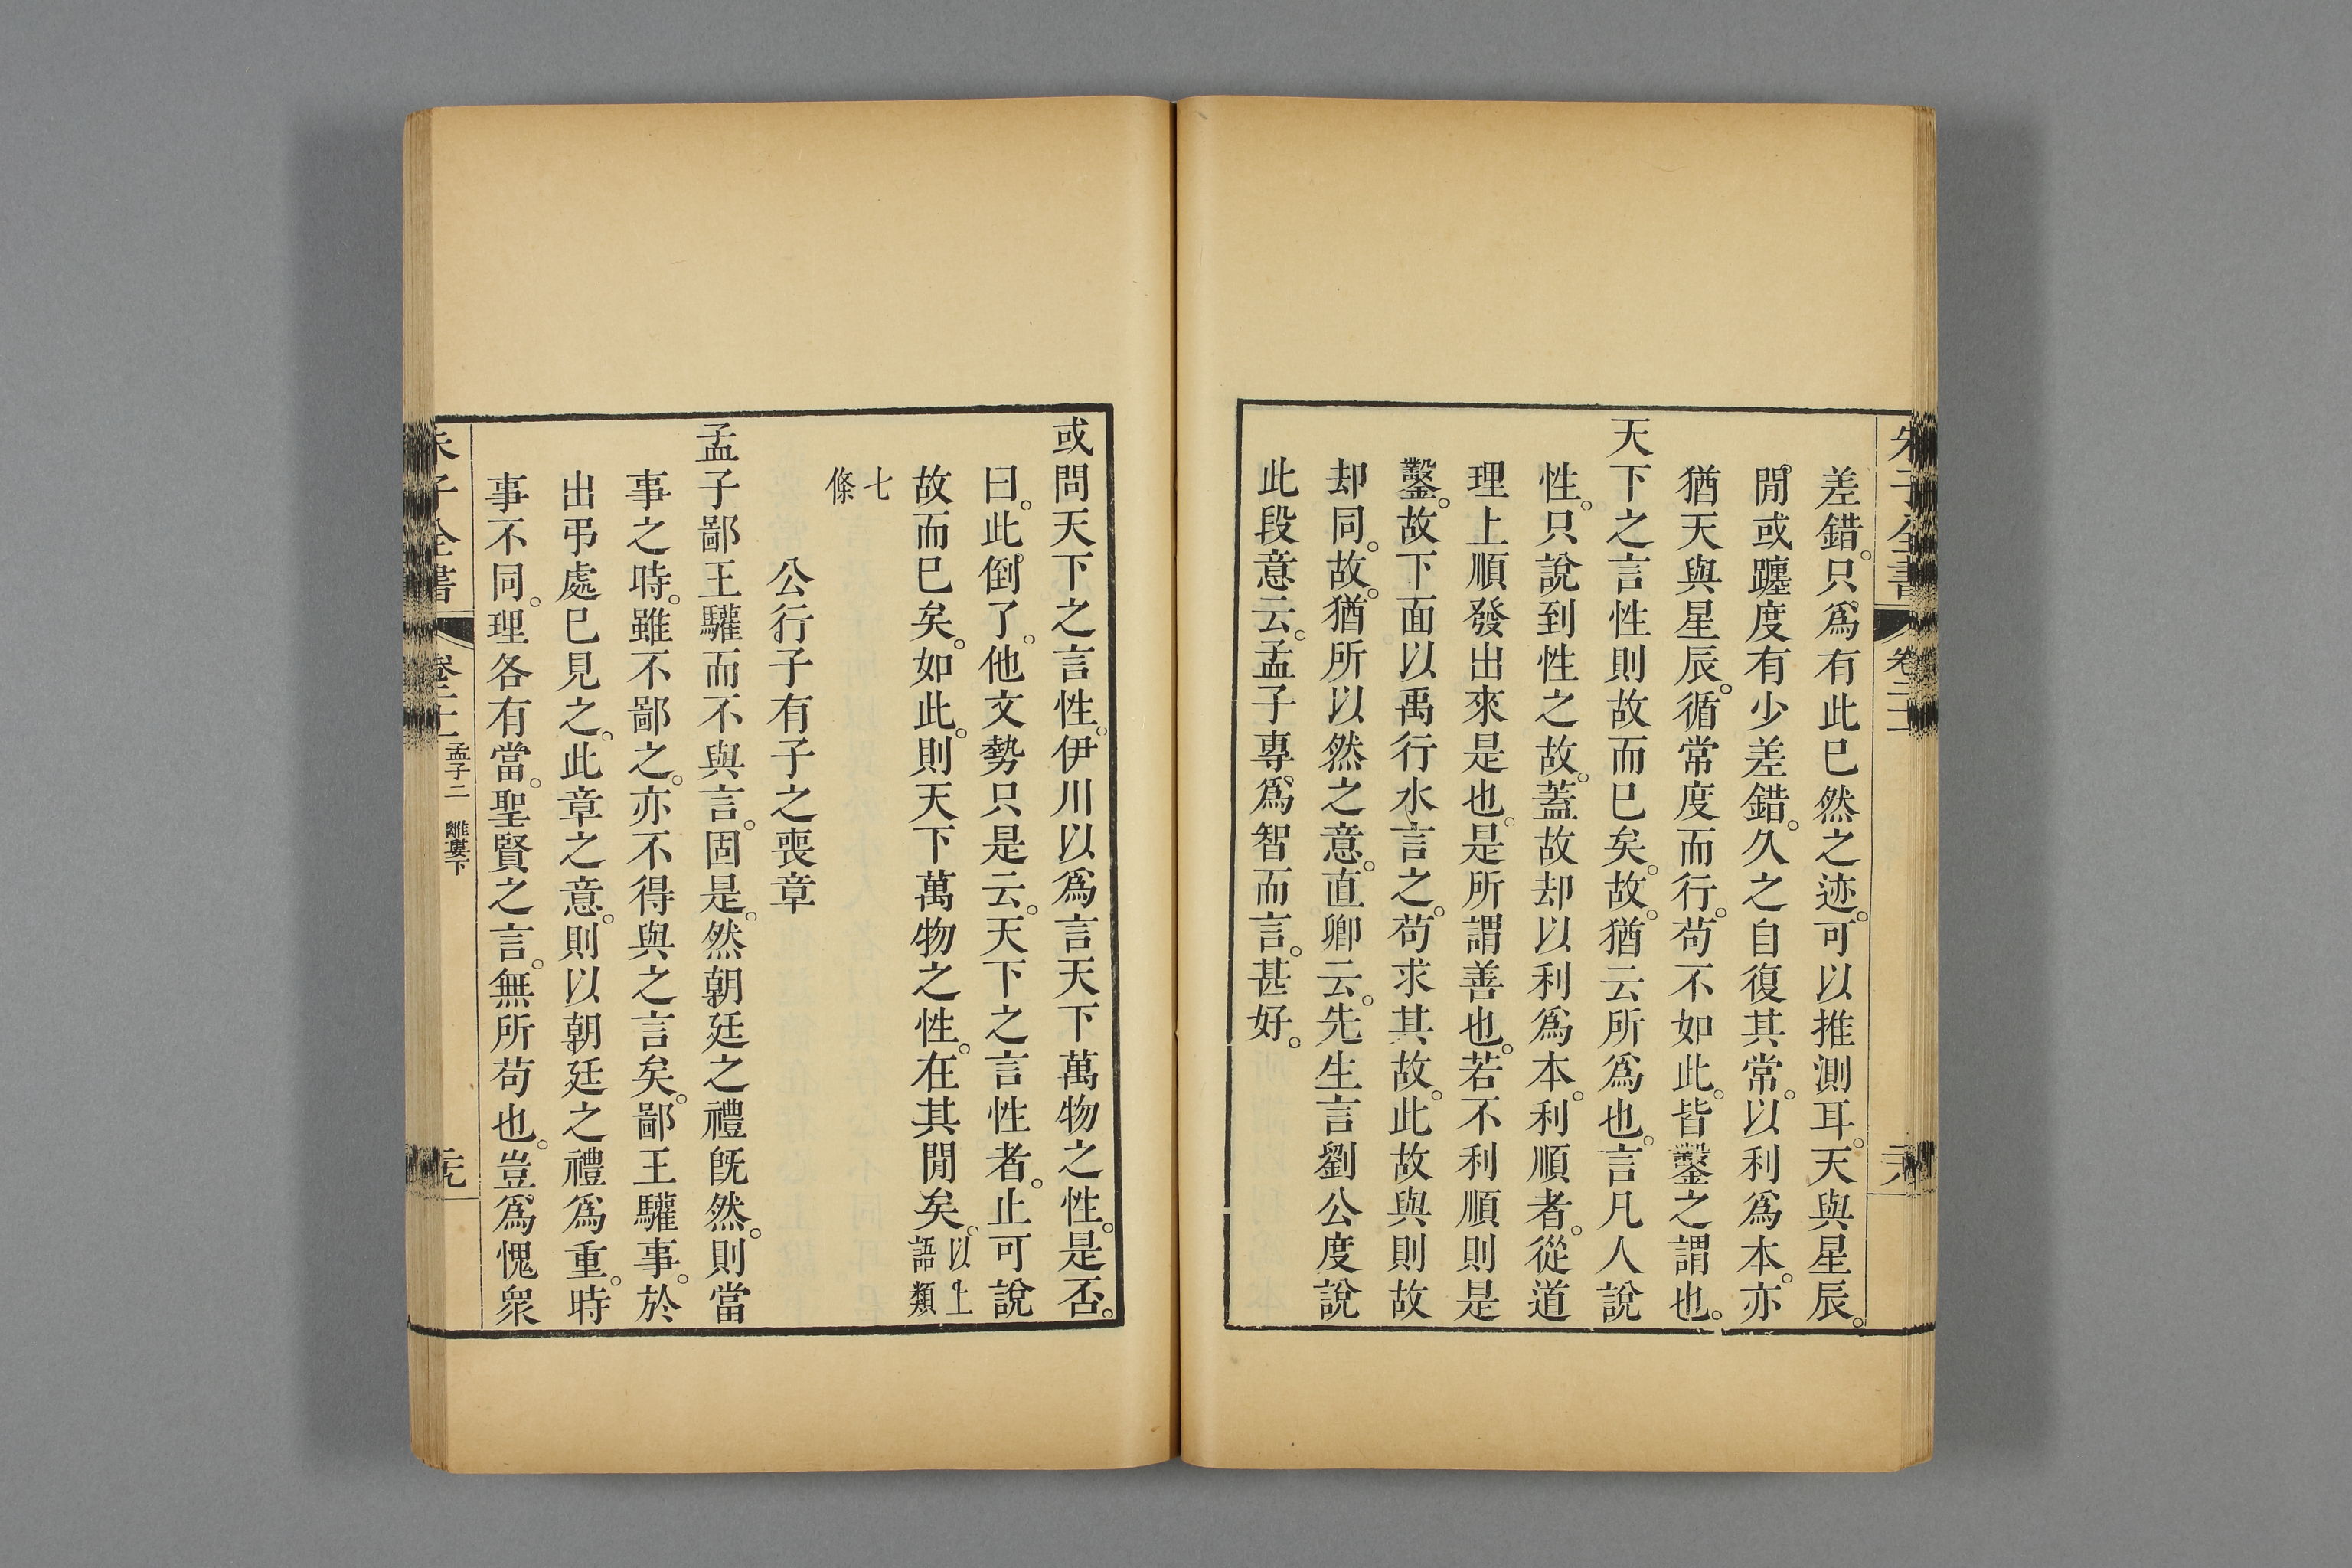 差錯。只爲有此已然之迹。可以推測耳。天與星辰。
閒或躔度有少差錯。久之自復其常。以利爲本。亦
猶天與星辰。循常度而行。苟不如此。皆鑿之謂也。
天下之言性則故而已矣。故。猶云所爲也。言凡人說
性。只說到性之故。蓋故却以利爲本。利順者。從道
理上順發出來是也。是所謂善也。若不利順則是
鑿。故下面以禹行水言之。苟求其故。此故與則故
却同。故。猶所以然之意。直卿云。先生言劉公度說
此段意云。孟子專爲智而言。甚好。
或問天下之言性。伊川以爲言天下萬物之性。是否。
曰。此倒了。他文勢只是云。天下之言性者。止可說
故而已矣。如此。則天下萬物之性。在其閒矣。以上語類
七條
公行子有子之喪章
孟子鄙王驩而不與言。固是。然朝廷之禮旣然。則當
事之時。雖不鄙之。亦不得與之言矣。鄙王驩事。於
出弔處已見之。此章之意。則以朝廷之禮爲重。時
事不同。理各有當。聖賢之言。無所苟也。豈爲愧衆
朱子全書
孟子二 離婁下